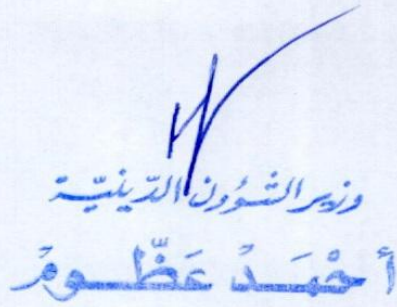 وزير الشؤون الدّينيّة
أحْمَد عَظّوم